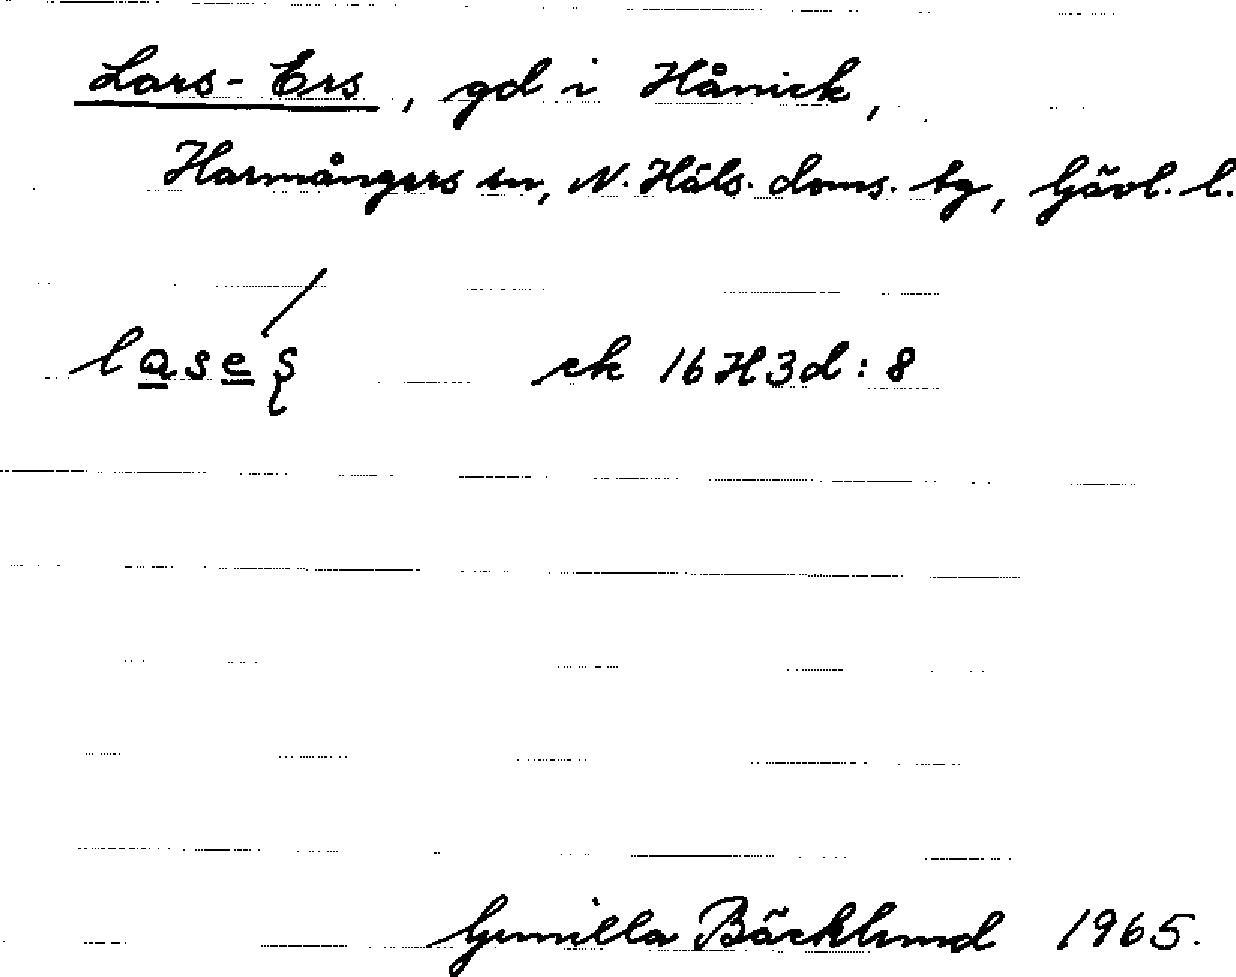 Lars-Ers, gd i Hånick,
Harmångers sn, N. Häls. doms. tg, Gävl. l.
lases ek 16H3d:8
Gunilla Bäcklund 1965.